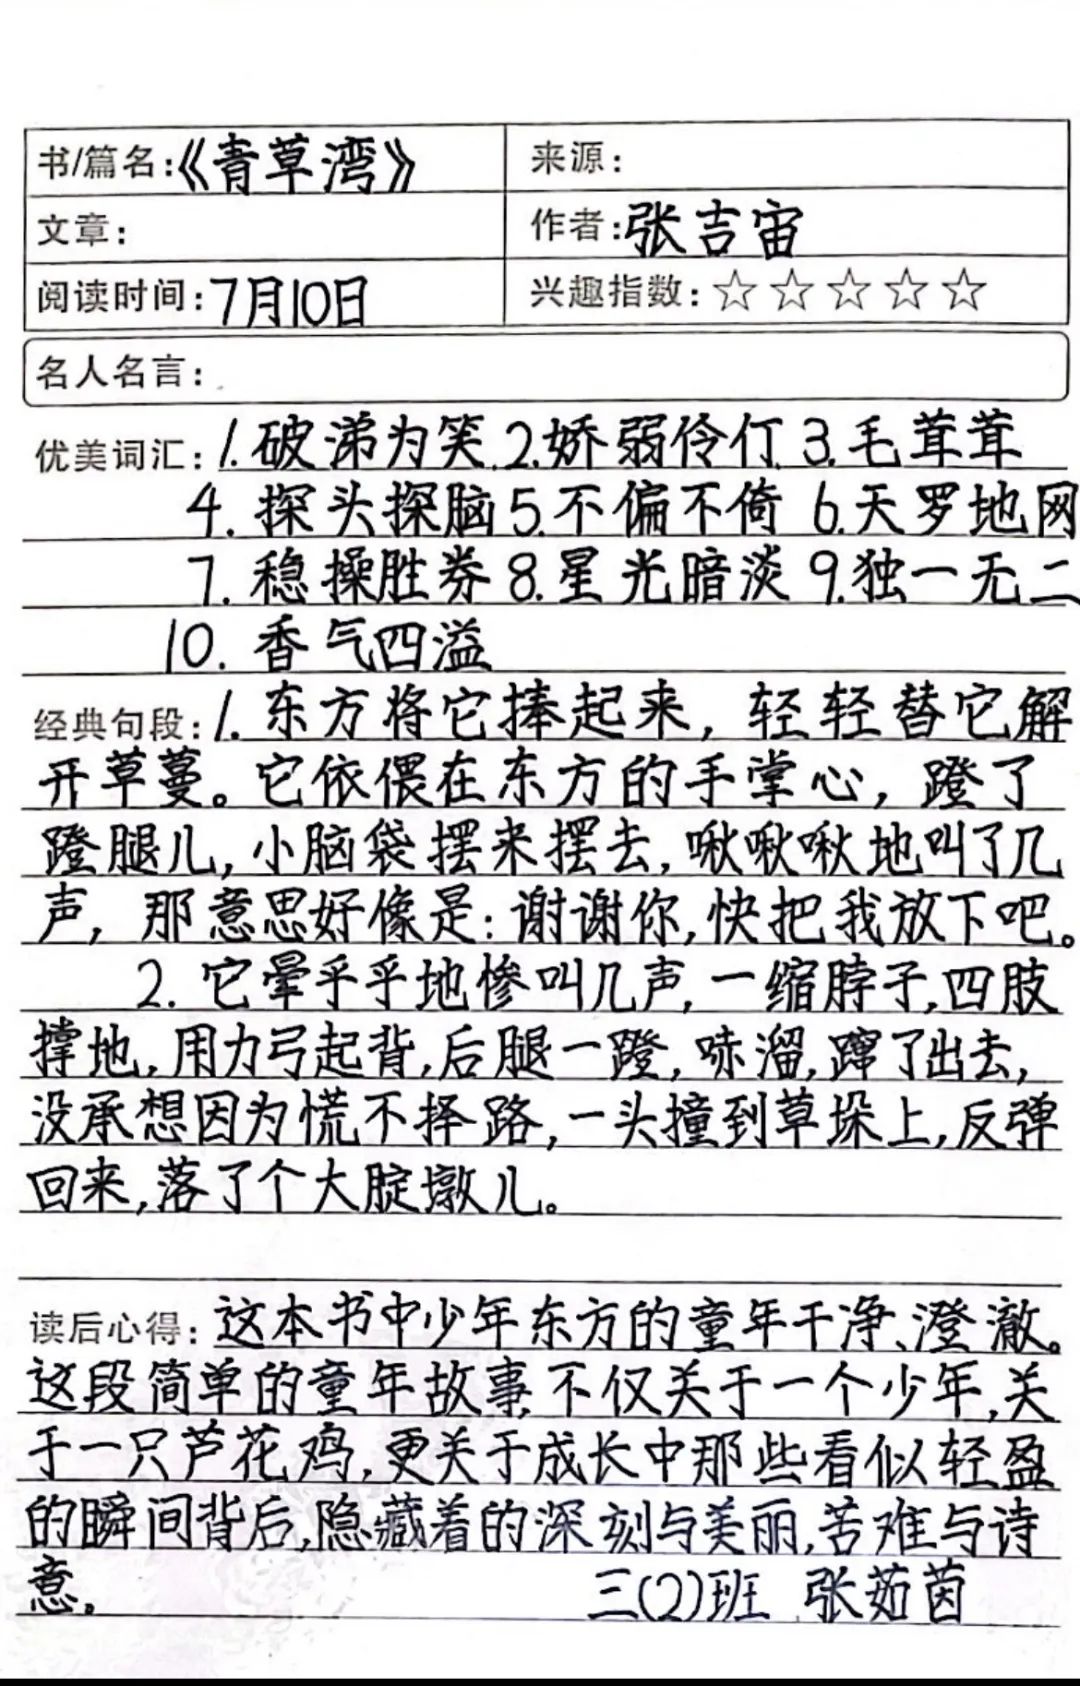 书/篇名:《青草湾》 来源:
文章: 作者:张吉宙
阅读时间:7月10日 兴趣指数:☆☆☆☆☆
名人名言:
优美词汇:1.破涕为笑.2.娇弱伶仃 3.毛茸茸
4.探头探脑5.不偏不倚 6.天罗地网
7.稳操胜券8.星光暗淡9.独一无二
10.香气四溢
经典句段:1.东方将它捧起来，轻轻替它解
开草蔓。它依偎在东方的手掌心，蹬了
蹬腿儿，小脑袋摆来摆去，啾啾啾地叫了几
声，那意思好像是:谢谢你，快把我放下吧。
2.它晕乎乎地惨叫几声，一缩脖子，四肢
撑地，用力弓起背，后腿一蹬，哧溜，蹿了出去，
没承想因为慌不择路，一头撞到草垛上，反弹
回来，落了个大腚墩儿。
读后心得:这本书中少年东方的童年干净、澄澈。
这段简单的童年故事，不仅关于一个少年，关
于一只芦花鸡，更关于成长中那些看似轻盈
的瞬间背后，隐藏着的深刻与美丽，苦难与诗
意。 三(2)班 张茹茵